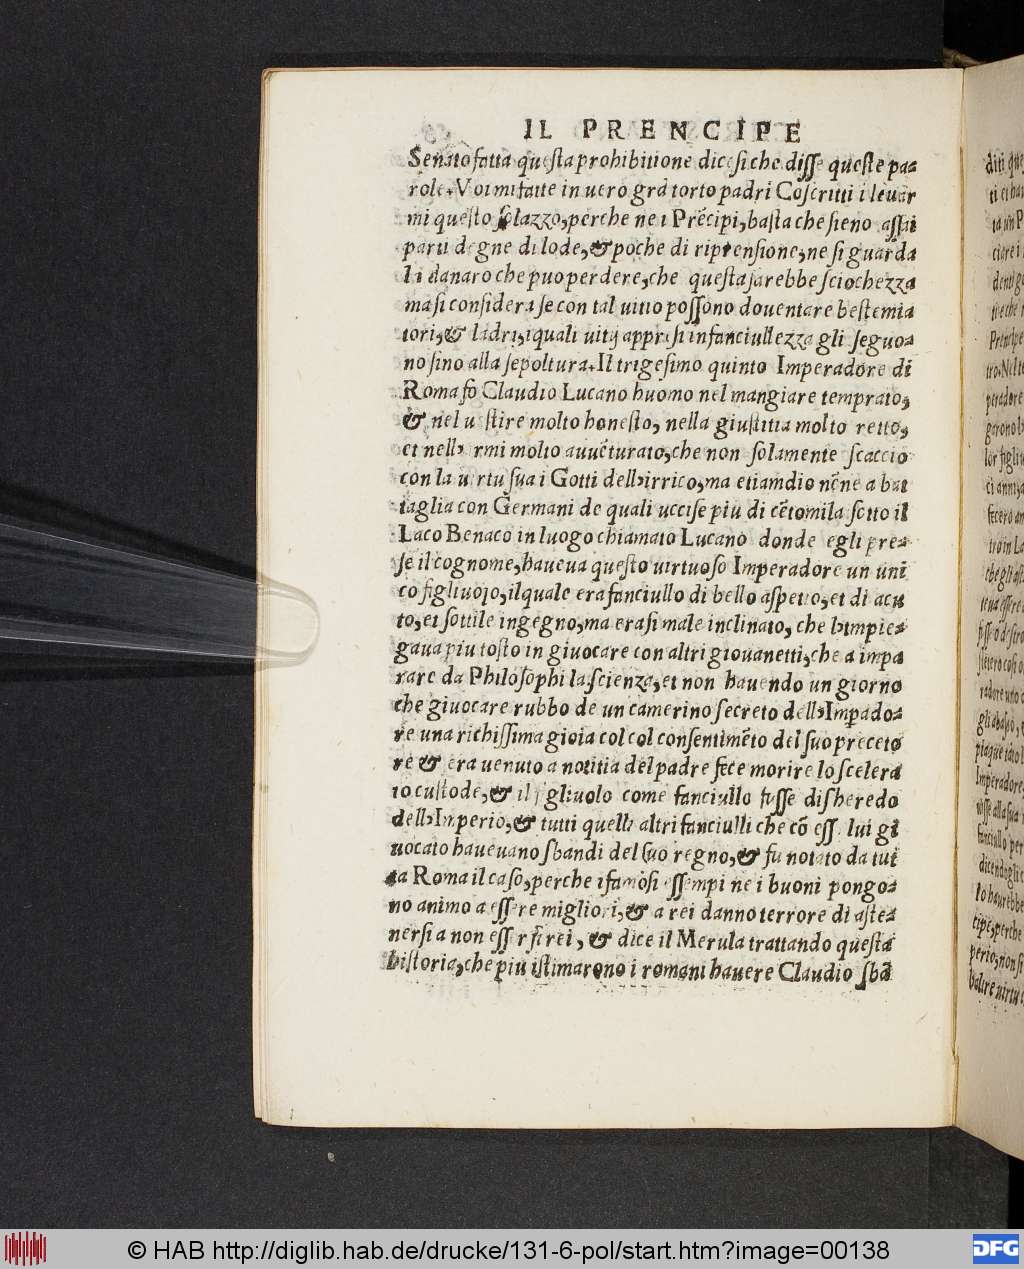 IL PRENCIPE
Senato fatta questa prohibitione dicesi che disse queste pa-
role. Voi mi fatte in uero grā torto padri Coscritti i leuar
mi questo solazzo, perche ne i Prēcipi, basta che sieno assai
parti degne di lode, & poche di riprensione, ne si guarda
li danaro che puo perdere, che questa sarebbe sciochezza
ma si considera se con tal uitio possono douentare bestemia
tori, & ladri, i quali uitij appresi in fanciullezza gli seguo-
no sino alla sepoltura. Il trigesimo quinto Imperadore di
Roma fo Claudio Lucano huomo nel mangiare temprato,
& nel uestire molto honesto, nella giustitia molto retto,
et nell' armi molto auuēturato, che non solamente scaccio
con la uirtu sua i Gotti dell'irrico, ma etiamdio nēne a bat
taglia con Germani de quali uccise piu di cētomila sotto il
Laco Benaco in luogo chiamato Lucano donde egli pre-
se il cognome, haueua questo uirtuoso Imperadore un uni
co figliuolo, il quale era fanciullo di bello aspetto, et di acu
to, et sottile ingegno, ma era si male inclinato, che l'impie-
gaua piu tosto in giuocare con altri giouanetti, che a impa
rare da Philosophi la scienza, et non hauendo un giorno
che giuocare rubbo de un camerino secreto dell'Impado-
re una richissima gioia col col consentimēto del suo preceto
re & era uenuto a notitia del padre fece morire lo scelera
to custode, & il figliuolo come fanciullo fusse disheredo
dell'Inperio, & tutti quelli altri fanciulli che cō esso lui gi
uocato haueuano sbandi del suo regno, & fu notato da tut
ta Roma il caso, perche i famosi essempi ne i buoni pongo-
no animo a essere migliori, & a rei danno terrore di aste-
nersi a non esser rei, & dice il Merula trattando questa
historia, che piu istimarono i romani hauere Claudio sbā
© HAB http://diglib.hab.de/drucke/131-6-pol/start.htm?image=00138
DFG